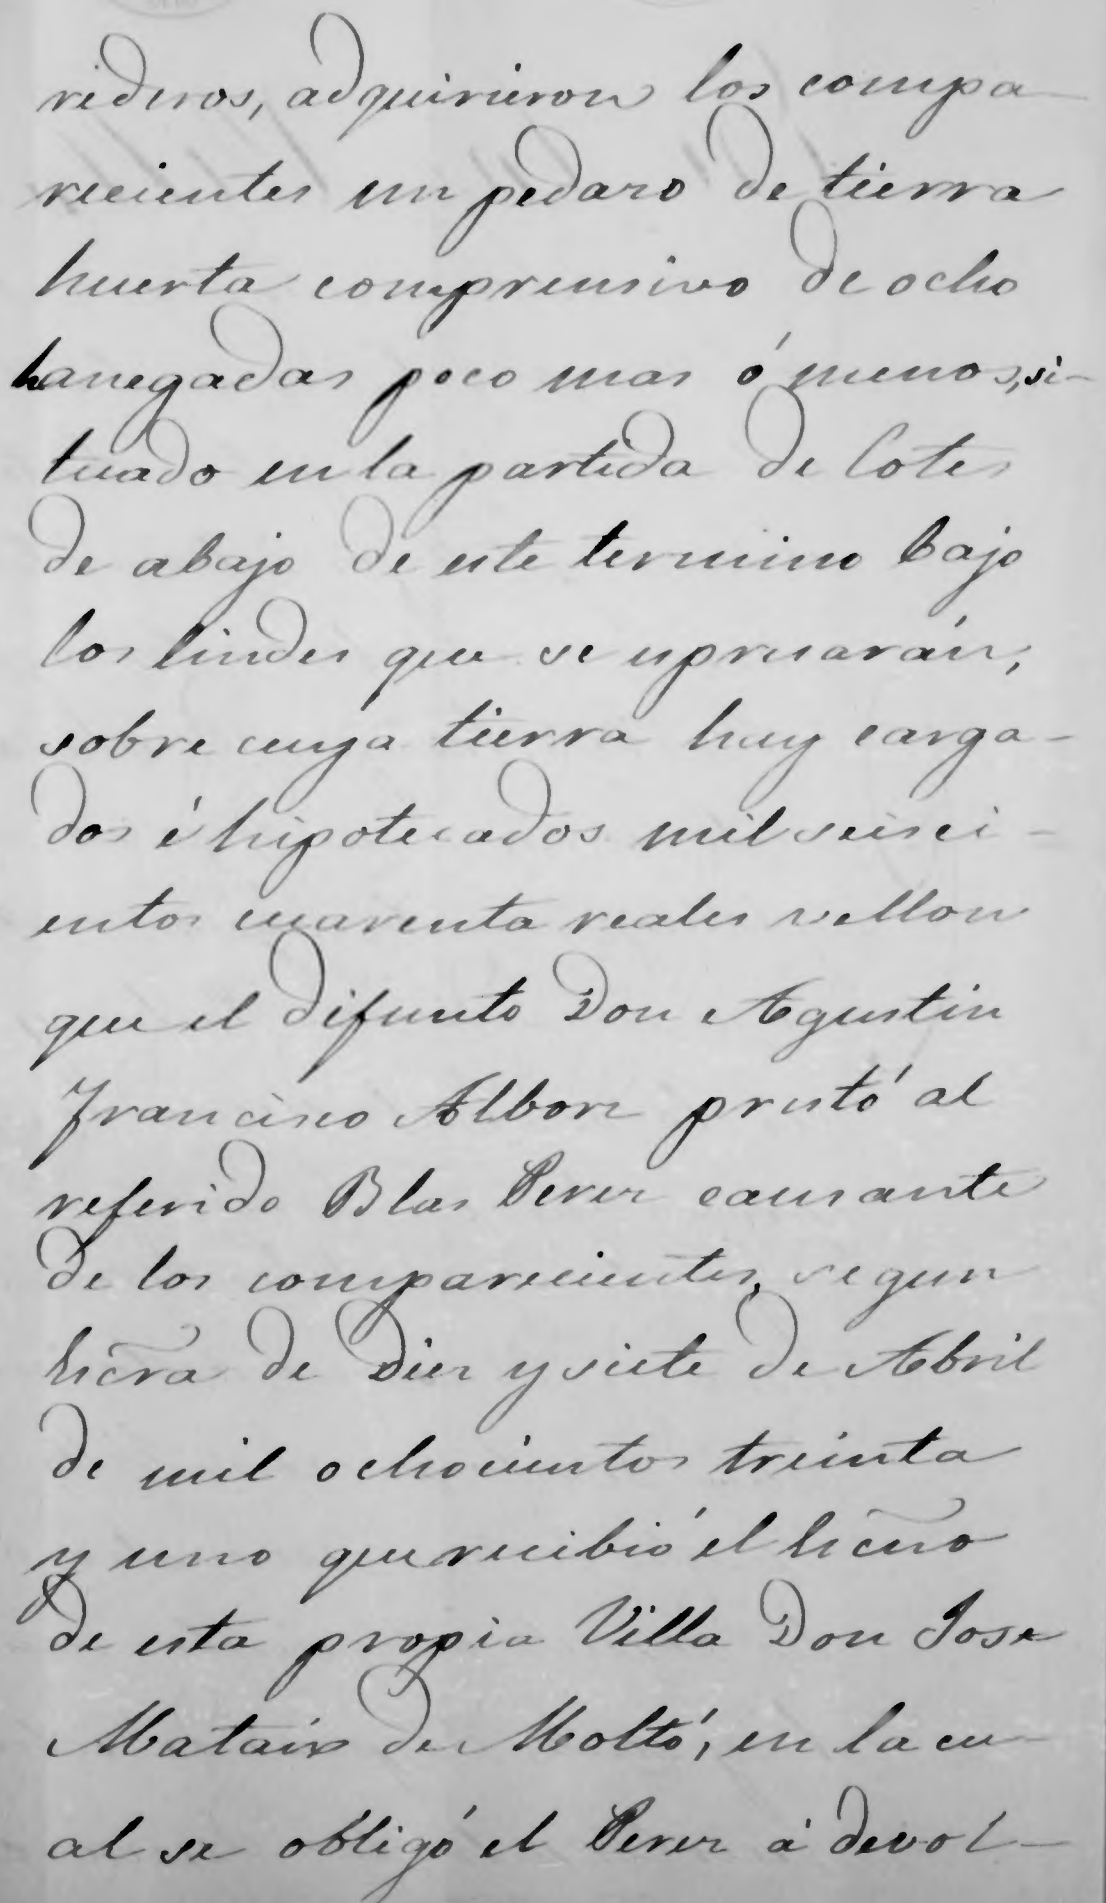 rederos, adquirieron los compa-
recientes un pedazo de tierra
huerta comprensivo de ocho
hanegadas poco mas ó menos, si-
tuado en la partida de Cotes
de abajo de este termino bajo
los lindes que se espresarán,
sobre cuya tierra hay carga-
dos é hipotecados mil seisci-
entos cuarenta reales vellon
que el difunto Don Agustin
Francisco Albors prestó al
referido Blas Perez causante
de los comparecientes, segun
Escra de Diez y siete de Abril
de mil ochocientos treinta
y uno que recibió el Escno
de esta propia Villa Don Jose
Mataix de Moltó, en la cu-
al se obligó el Perez á devol-